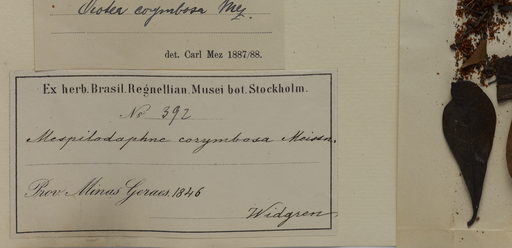 Ocotea corymbosa Mez.
det. Carl Mez 1887/88.
Ex herb. Brasil. Regnellian. Musei bot. Stockholm.
No 392
Mespilodaphne corymbosa Meissn.
Prov. Minas Geraes, 1846
Widgren